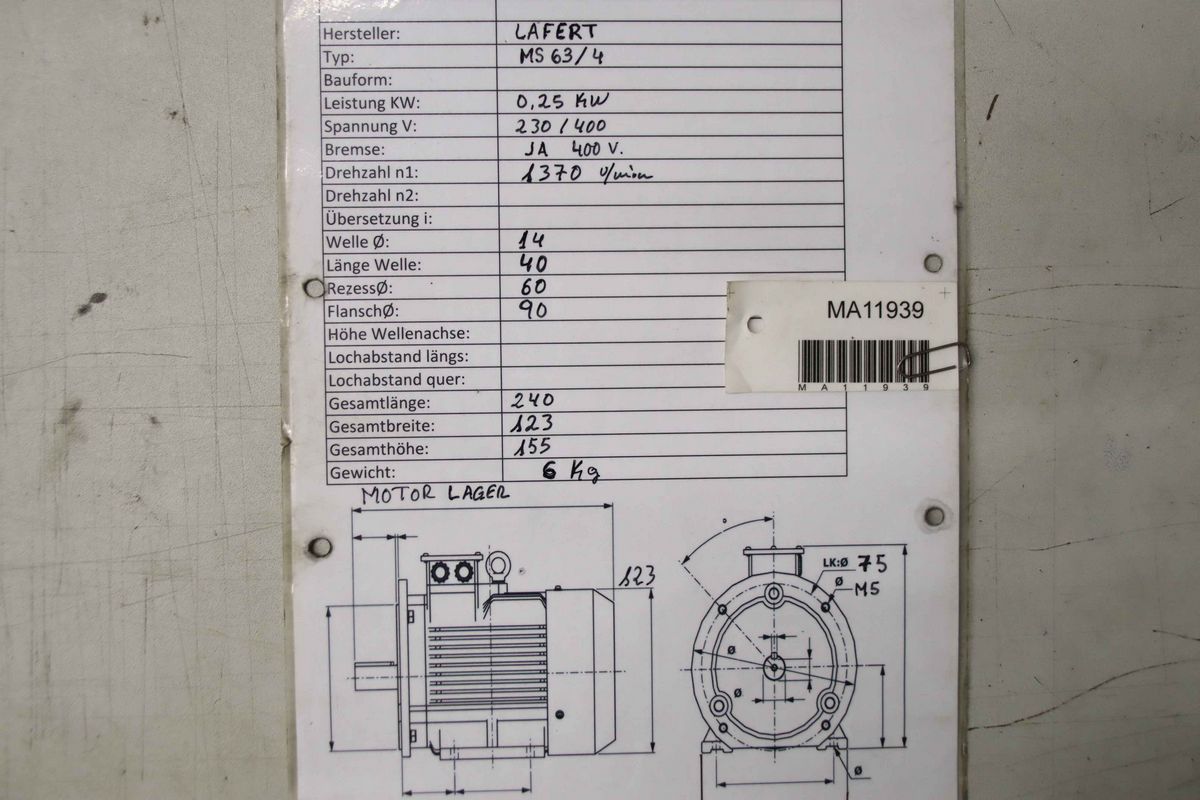 Hersteller: LAFERT
Typ: MS 63/4
Bauform:
Leistung KW: 0,25 KW
Spannung V: 230 / 400
Bremse: JA 400 V.
Drehzahl n1: 1370 U/min
Drehzahl n2:
Übersetzung i:
Welle Ø: 14
Länge Welle: 40
RezessØ: 60
FlanschØ: 90
Höhe Wellenachse:
Lochabstand längs:
Lochabstand quer:
Gesamtlänge: 240
Gesamtbreite: 123
Gesamthöhe: 155
Gewicht: 6 Kg
MA11939
MA11939
MOTOR LAGER
123
°
LK:Ø 75
Ø
M5
Ø
Ø
Ø